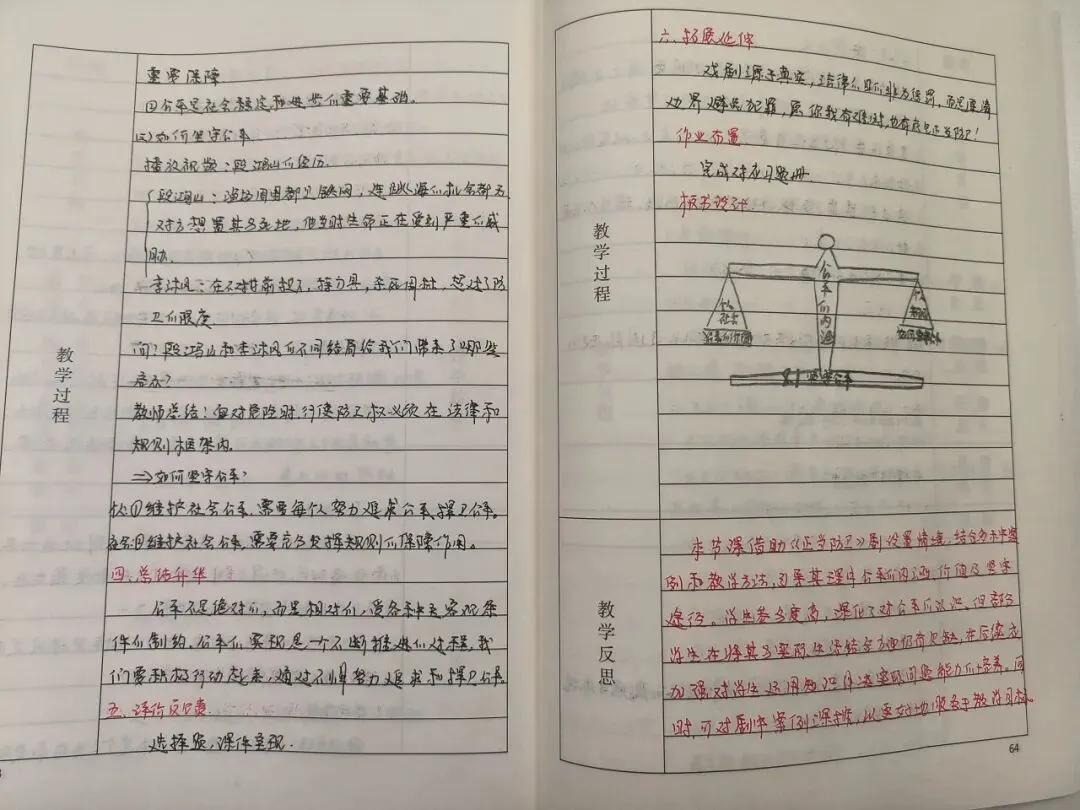 教学过程
重要保障
②公平是社会稳定和进步的重要基础。
(二)如何坚守公平
播放视频：段鸿山的经历.
段鸿山：渔场周围都是铁网，连跳海的机会都无
对方想置其于死地，但当时生命正在受到严重的威
胁.
李沐风：在不甘前提下，持刀具，杀死周彬，超过了防
卫的限度.
问：段鸿山和李沐风的不同结局给我们带来了哪些
启示？
教师总结：面对危险时，行使防卫权必须在法律和
规则框架内.
⇒如何坚守公平？
个人①维护社会公平，需要每个人努力追求公平，捍卫公平。
社会②维护社会公平，需要充分发挥规则的保障作用。
四、总结升华
公平不是绝对的，而是相对的，受各种主客观条
件的制约。公平的实现是一个不断推进的过程，我
们要积极行动起来，通过不懈努力追求和捍卫公平
五、评价反馈
选择题，课件呈现.
六、拓展延伸
戏剧源于真实，法律的目的非为惩罚，而是厘清
边界避免犯罪，愿你我有难时，也有底气正当防卫！
作业布置
完成对应习题册.
板书设计
教学过程
公平的内涵
个人
社会
公平的价值
个人
8.1 坚守公平
教学反思
本节课借助《正当防卫》剧设置情境，结合多种案
例和教学方法，引导其理解公平的内涵、价值及坚守
途径。学生参与度高，深化了对公平的认识，但部分
学生在将其与实际生活结合方面仍有欠缺，在后续应
加强对学生运用知识解决实际问题能力的培养，同
时，可对剧中案例
以更好地服务于教学目标。
64